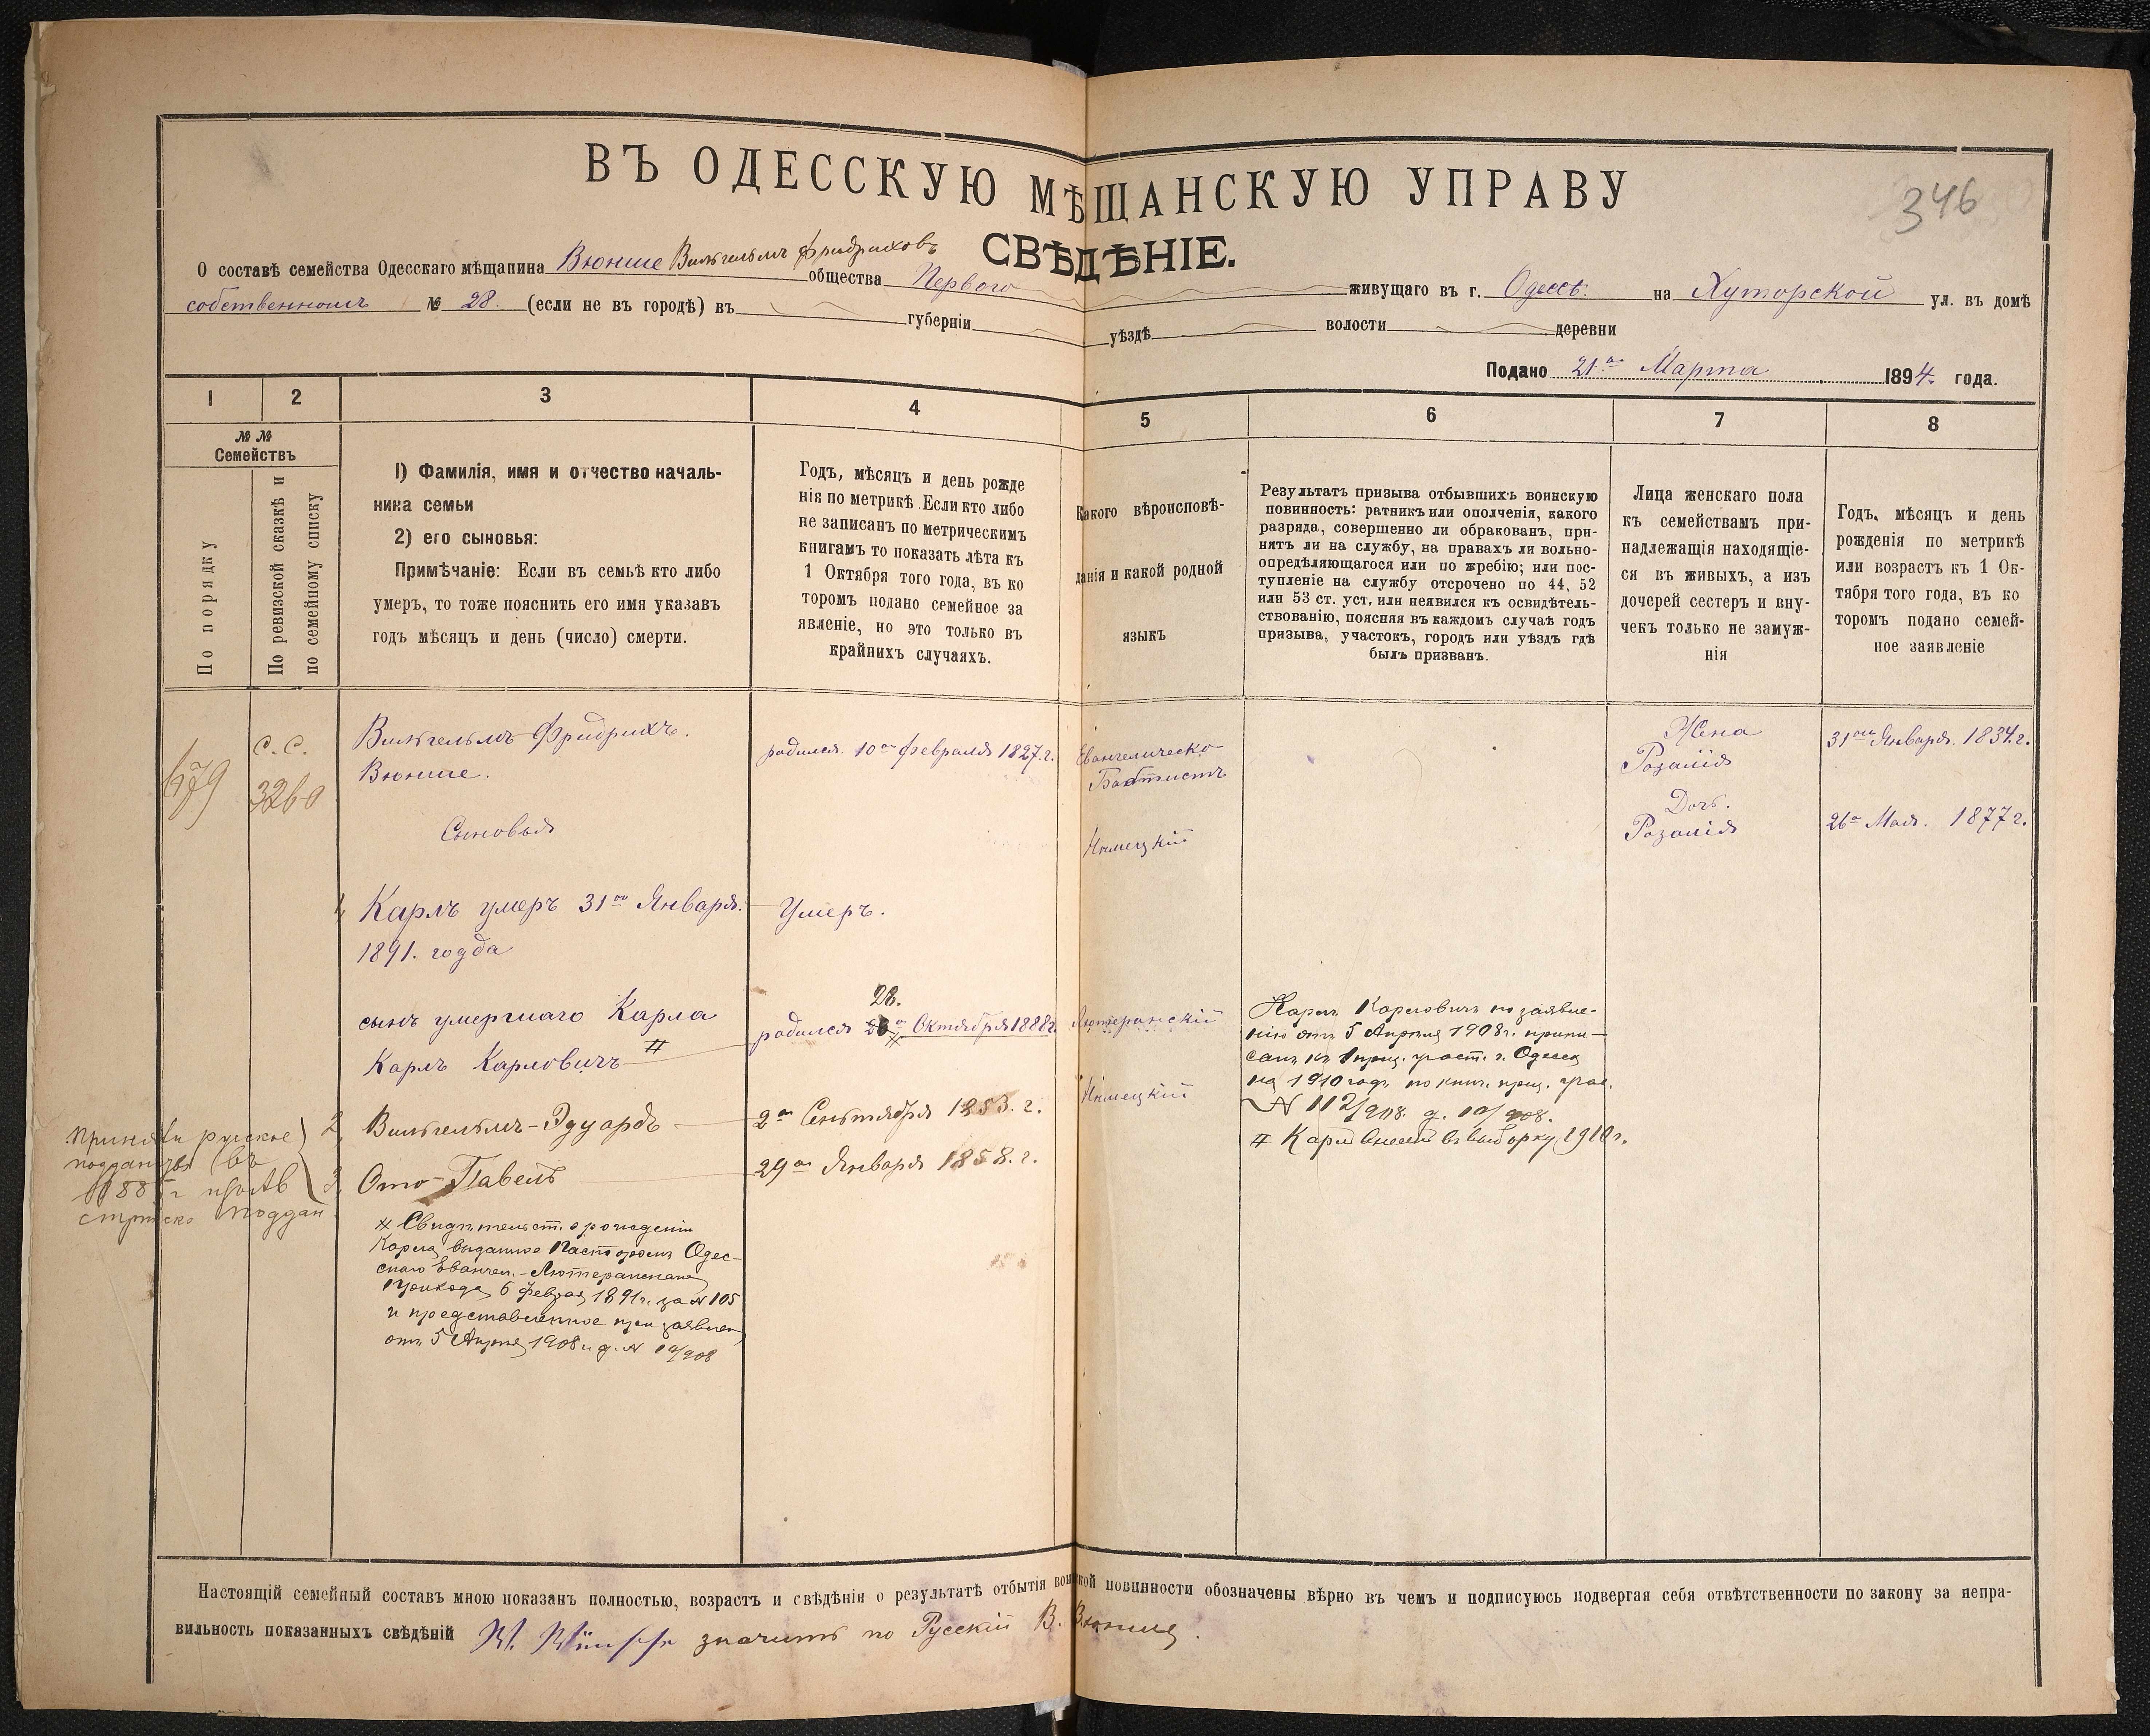 ВЪ ОДЕССКУЮ МѢЩАНСКУЮ УПРАВУ
346
СВѢДѢНІЕ.
О составѣ семейства Одесскаго мѣщанина Вюнше Вильгельмъ Фридриховъ общества Перваго живущаго въ г. Одессѣ. на Хуторской ул. въ домѣ
собственномъ № 28. (если не въ городѣ) въ губерніи уѣздѣ волости деревни
Подано 21го Марта 1894. года.
1 2 3 4 5 6 7 8
№ №
Семействъ
По порядку
По ревизской сказкѣ и
по семейному списку
1) Фамилія, имя и отчество началь-
ника семьи
2) его сыновья:
Примѣчаніе: Если въ семьѣ кто либо
умеръ, то тоже пояснить его имя указавъ
годъ мѣсяцъ и день (число) смерти.
Годъ, мѣсяцъ и день рожде
нія по метрикѣ. Если кто либо
не записанъ по метрическимъ
книгамъ то показать лѣта къ
1 Октября того года, въ ко
торомъ подано семейное за
явленіе, но это только въ
крайнихъ случаяхъ.
Какого вѣроисповѣ-
данія и какой родной
языкъ
Результатъ призыва отбывшихъ воинскую
повинность: ратникъ или ополченія, какого
разряда, совершенно ли обракованъ, при-
нятъ ли на службу, на правахъ ли вольно-
опредѣляющагося или по жребію; или пос-
тупленіе на службу отсрочено по 44, 52
или 53 ст. уст. или неявился къ освидѣтель-
ствованію, поясняя въ каждомъ случаѣ годъ
призыва, участокъ, городъ или уѣздъ гдѣ
былъ призванъ.
Лица женскаго пола
къ семействамъ при-
надлежащія находящіе-
ся въ живыхъ, а изъ
дочерей сестеръ и вну-
чекъ только не замуж-
нія
Годъ, мѣсяцъ и день
рожденія по метрикѣ
или возрастъ къ 1 Ок-
тября того года, въ ко
торомъ подано семей-
ное заявленіе
679
С.С.
3260
Вильгельмъ Фридрихъ.
Вюнше.
родился 10го Февраля 1827.г.
Евангелическо
Баптистъ
Нѣмецкій
Жена
Розалія
31го Января. 1834.г.
Дочь.
Розалія
26го Мая. 1877г.
Сыновья
1, Карлъ умеръ 31го Января.
1891. года
Умеръ.
сынъ умершаго Карла
Карлъ Карловичъ #
28.
родился Октября 1888г
#
Лютеранскій
Нѣмецкій
Карлъ Карловичъ по заявле-
нію отъ 5 Апрѣля 1908г. припи-
санъ къ 1 приз. участ. г. Одессы
на 1910 годъ по кни. приз. учас.
N 112/908. д. 10/908.
# Карлъ внесенъ въ выборку 1910г.
2, Вильгельмъ-Эдуардъ 2го Сентября 1853.г.
3, Ото-Павелъ 29го Января 1858.г.
Приняли русское
# Свидѣтельст. о рожденіи
Карла, выданное Пасторомъ Одес-
скаго Евангел.-Лютеранскаго
Прихода, 6 Февра, 1891г. за N 105
и представленное при заявлен
отъ 5 Апрѣля, 1908г д. N 10/908
Настоящій семейный составъ мною показанъ полностью, возрастъ и свѣдѣнія о результатѣ отбытія воинской повинности обозначены вѣрно въ чемъ и подписуюсь подвергая себя отвѣтственности по закону за непра-
вильность показанныхъ свѣдѣній W. Wünsche значитъ по Русскій В. Вюнше.